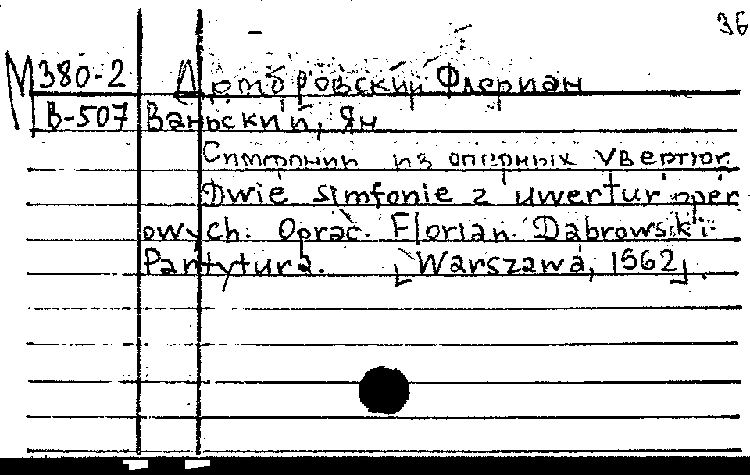 36
М 380-2 Домбровский Флериан
В-507 Ваньский, Ян
Симфонии из оперных увертюр.
Dwie simfonie z uwertur oper
owych. Oprac. Florian Dąbrowski.
Partytura. [Warszawa, 1962].